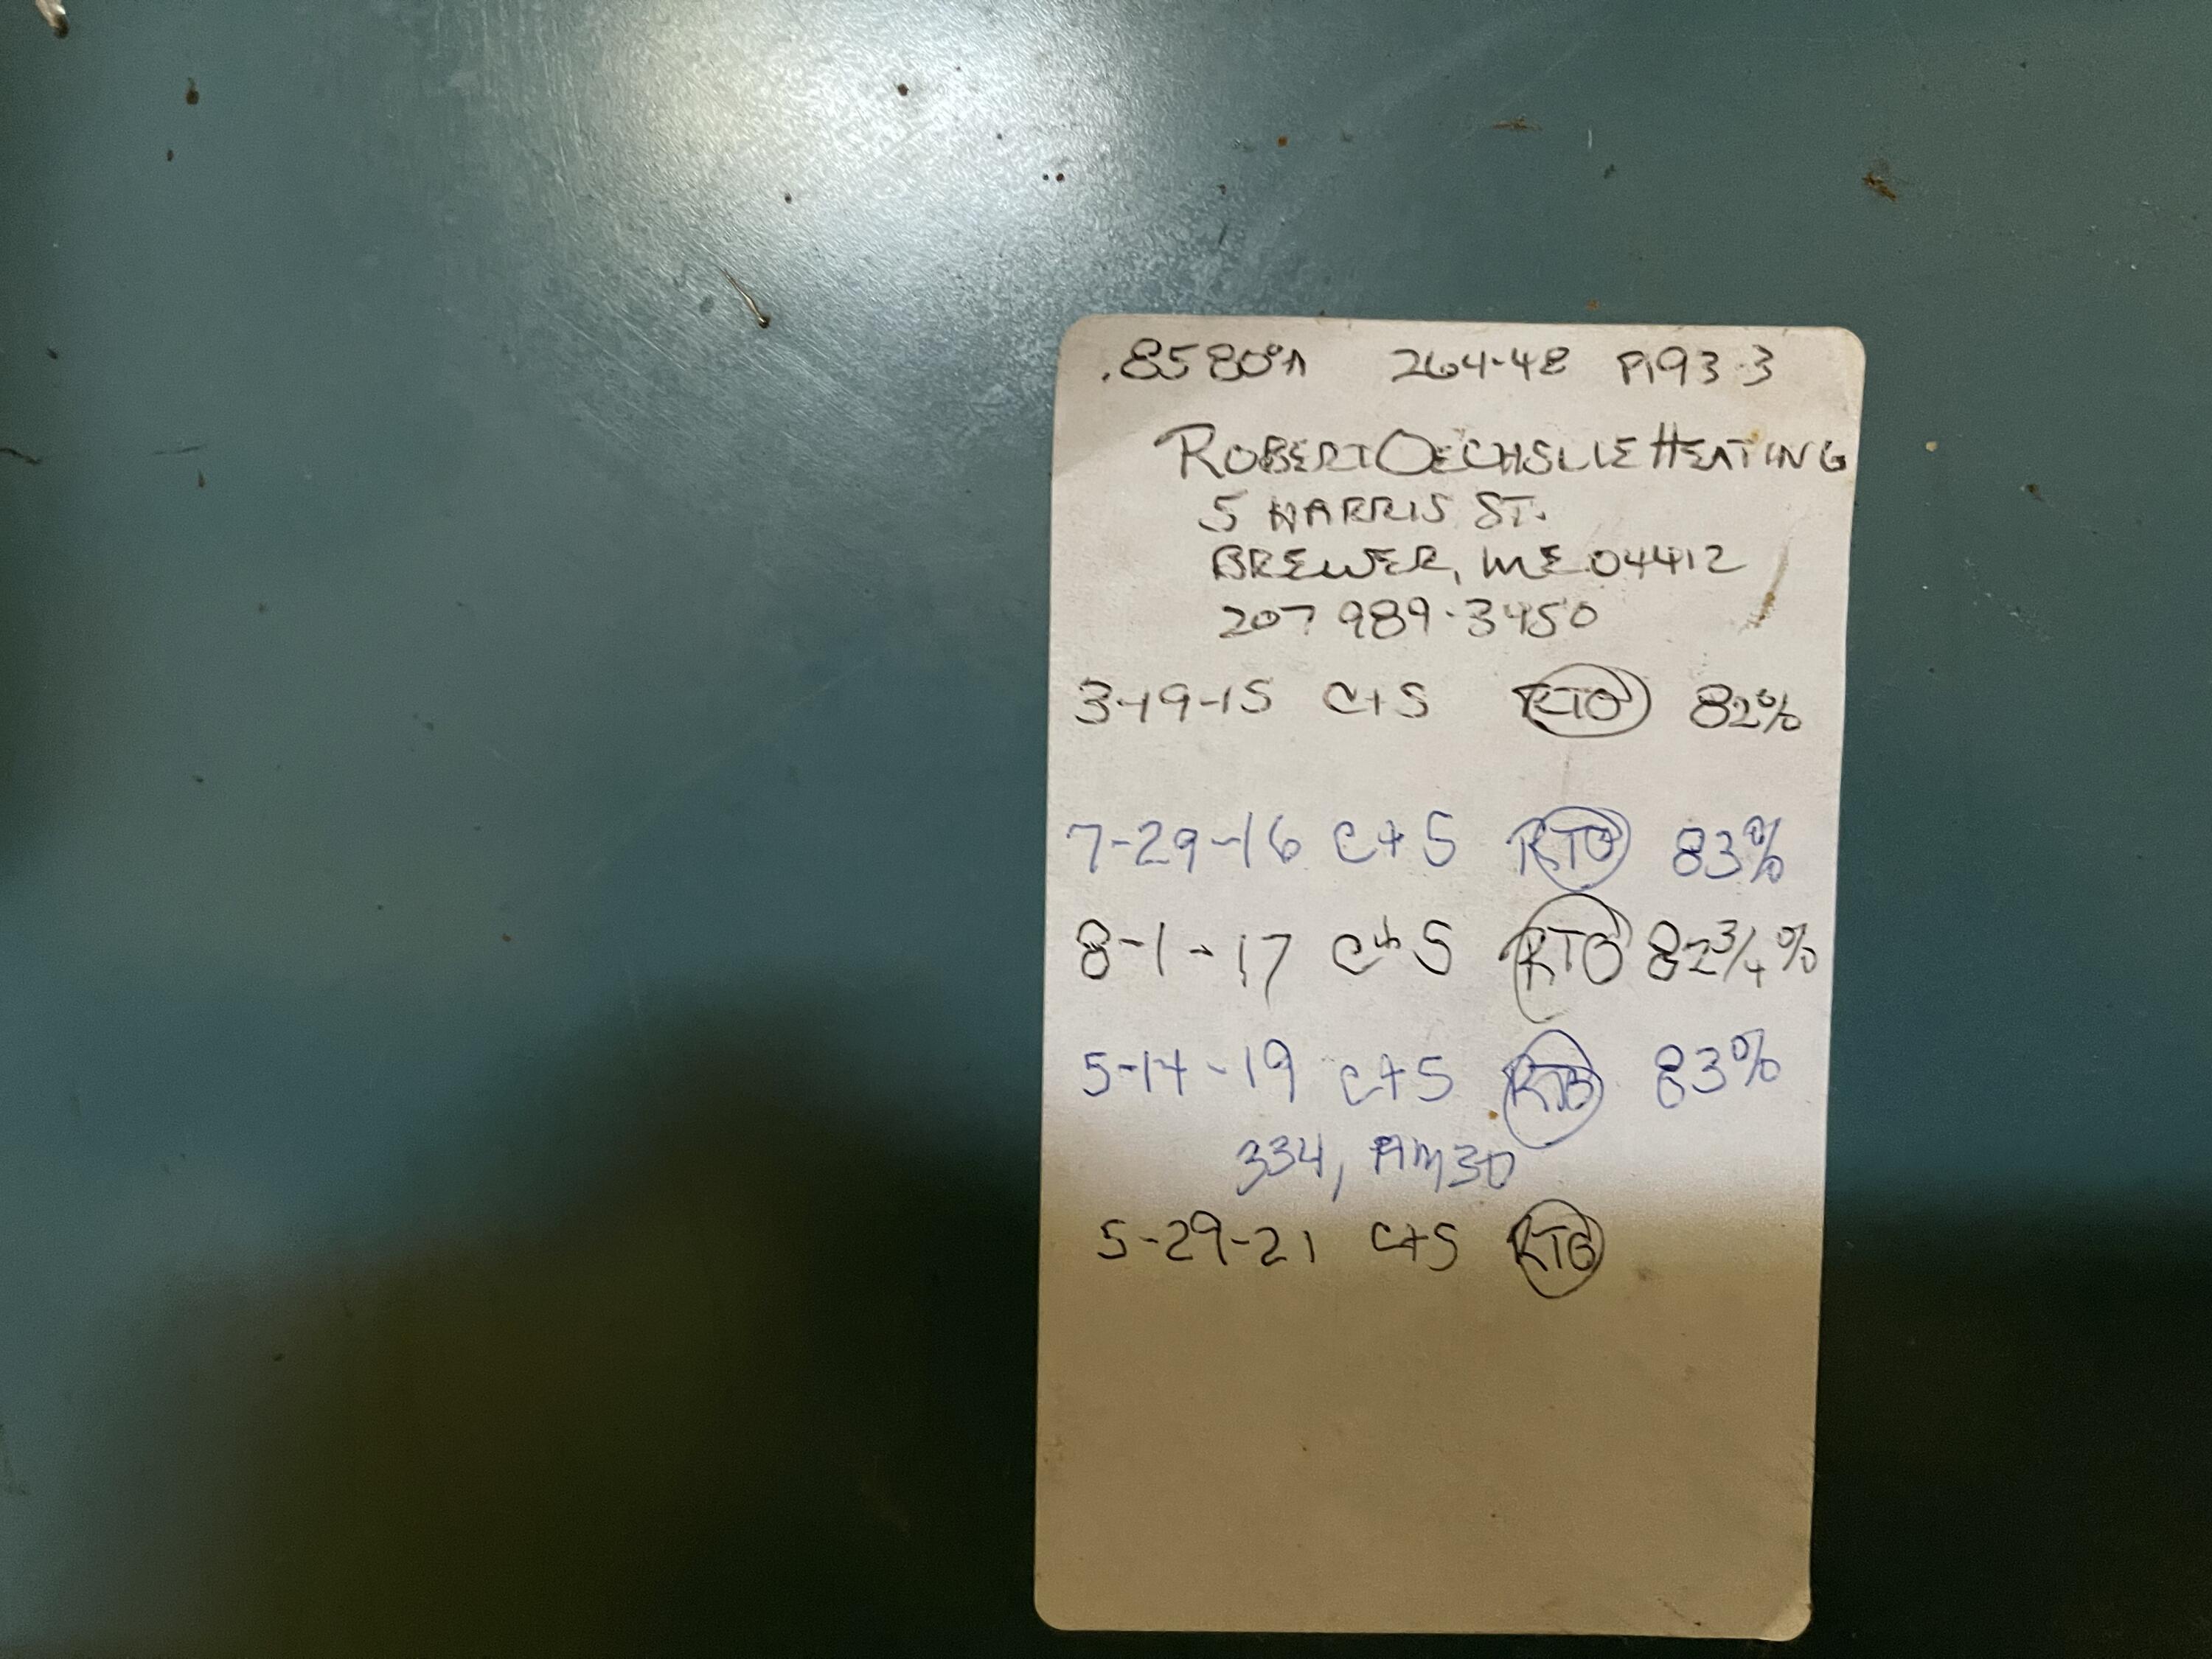 .85 80°A 264-48 P193-3
ROBERT OECHSLIE HEATING
5 HARRIS ST.
BREWER, ME 04412
207 989-3450
3-19-15 C+S RTO 82%
7-29-16 C+S RTO 83%
8-1-17 C+S RTO 82 3/4%
5-14-19 C+S RTO 83%
334, AM30
5-29-21 C+S RTO